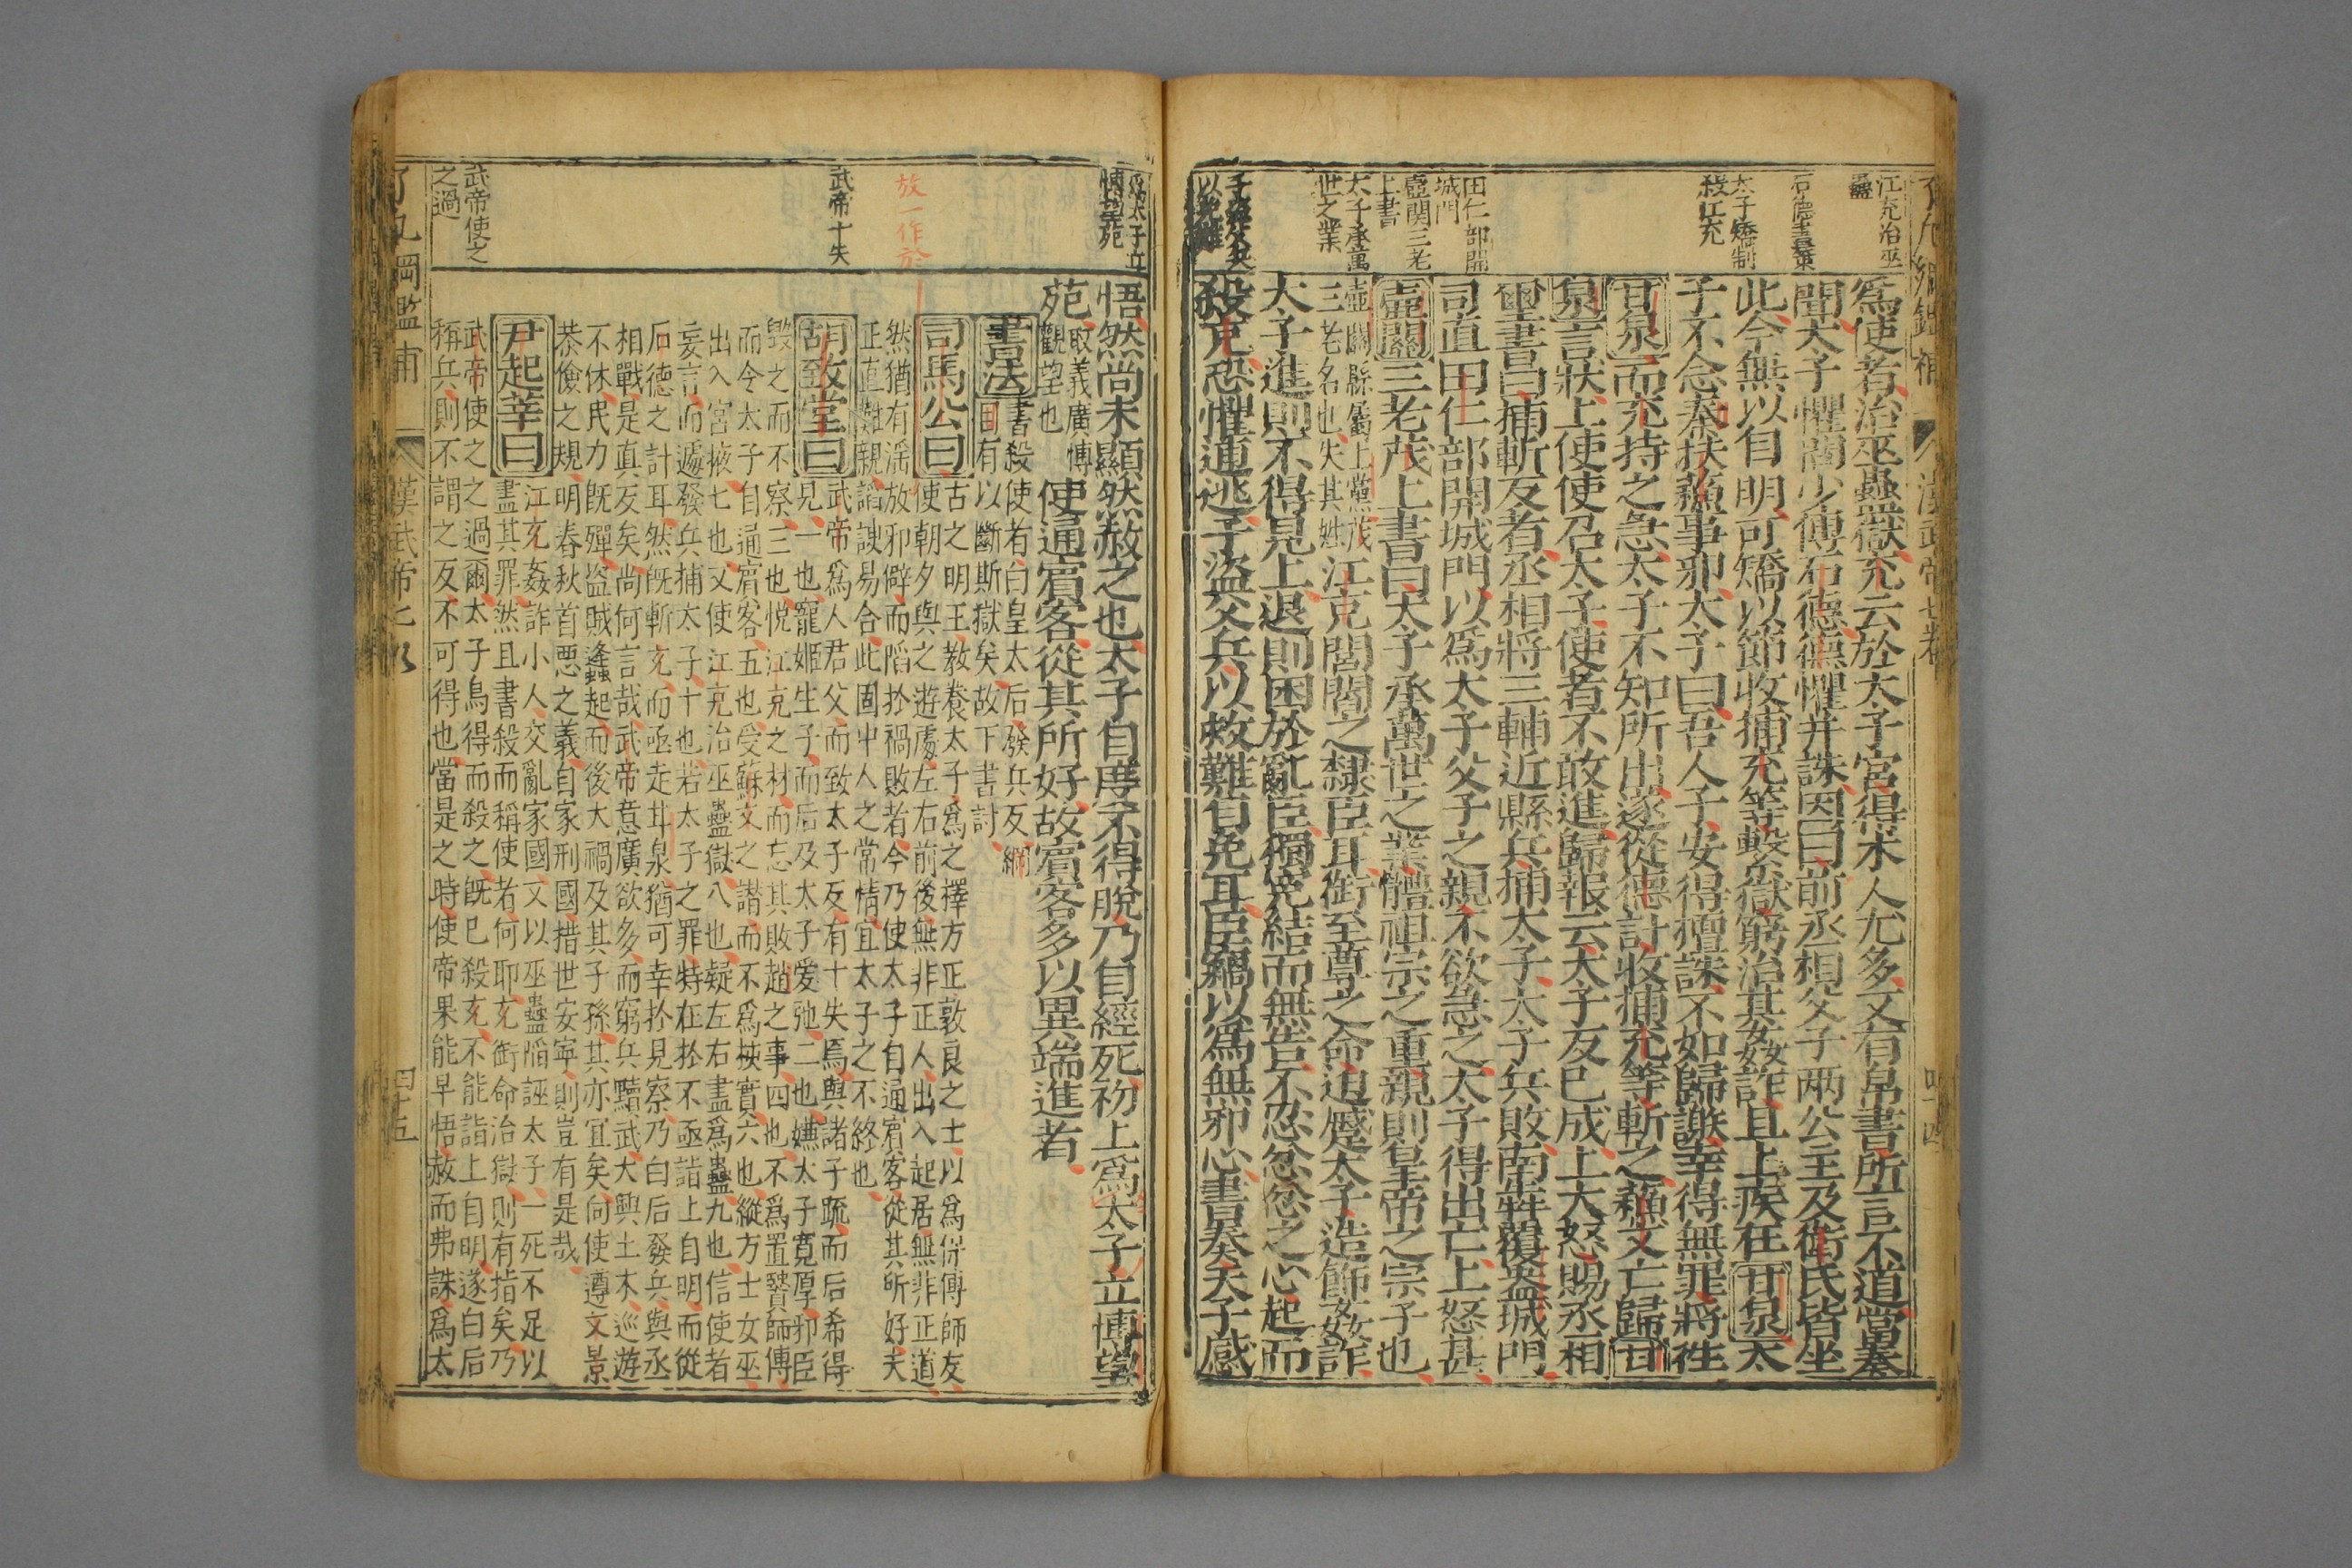 了凡綱鑑補　漢武帝七卷　四十四
江充治巫
蠱
石德畫策
太子矯制
殺江充
田仁部開
城門
壺關三老
上書
太子承萬
世之業
爲使者治巫蠱獄充云於太子宮得木人尤多又有帛書所言不道當奏
聞太子懼問少傅石德德懼并誅因曰前丞相父子兩公主及衛氏皆坐
此今無以自明可矯以節收捕充等繫獄窮治其姦詐且上疾在甘泉太
子不念秦扶蘇事邪太子曰吾人子安得擅誅不如歸謝幸得無罪將往
甘泉而充持之急太子不知所出遂從德計收捕充等斬之蘇文亡歸甘
泉言狀上使使召太子使者不敢進歸報云太子反已成上大怒賜丞相
璽書曰捕斬反者丞相將三輔近縣兵捕太子太子兵敗南犇覆盎城門
司直田仁部開城門以爲太子父子之親不欲急之太子得出亡上怒甚
壺關三老茂上書曰太子承萬世之業體祖宗之重親則皇帝之宗子也
壺關縣屬上黨茂
三老名也失其姓
江充閭閻之隸臣耳銜至尊之命迫蹙太子造飾姦詐
太子進則不得見上退則困於亂臣獨冤結而無告不忍忿忿之心起而
殺充恐懼逋逃子盜父兵以救難自免耳臣竊以爲無邪心書奏天子感
爲太子立
博望苑
放一作於
武帝十失
武帝使之
之過
悟然尚未顯然赦之也太子自度不得脫乃自經死初上爲太子立博望
苑
取義廣博
觀望也
使通賓客從其所好故賓客多以異端進者
書法
書殺使者白皇太后發兵反綱
目有以斷斯獄矣故下書討
司馬公曰
古之明王教養太子爲之擇方正敦良之士以爲保傅師友
使朝夕與之遊處左右前後無非正人出入起居無非正道
然猶有淫放邪僻而陷於禍敗者今乃使太子自通賓客從其所好夫
正直難親謟諛易合此固中人之常情宜太子之不終也
胡致堂曰
武帝爲人君父而致太子反有十失焉與諸子疏而后希得
見一也寵姬生子而后及太子愛弛二也嫌太子寬厚邪臣
毀之而不察三也悅江充之材而忘其敗趙之事四也不爲置賢師傅
而令太子自通賓客五也受蘇文之譖而不爲核實六也縱方士女巫
出入宮掖七也又使江充治巫蠱獄八也疑左右盡爲蠱九也信使者
妄言而遽發兵捕太子十也若太子之罪特在於不亟詣上自明而從
石德之計耳然既斬充而亟走甘泉猶可幸於見察乃白后發兵與丞
相戰是直反矣尚何言哉武帝意廣欲多而窮兵黷武大興土木巡遊
不休民力既殫盜賊蠭起而後大禍及其子孫其亦宜矣向使遵文景
恭儉之規明春秋首惡之義自家刑國措世安寧則豈有是哉
尹起莘曰
江充姦詐小人交亂家國又以巫蠱陷誣太子一死不足以
盡其罪然且書殺而稱使者何耶充銜命治獄則有指矣乃
武帝使之之過爾太子烏得而殺之既已殺充不能詣上自明遂白后
稱兵則不謂之反不可得也當是之時使帝果能早悟赦而弗誅爲太
了凡綱鑑補　漢武帝七卷　四十五